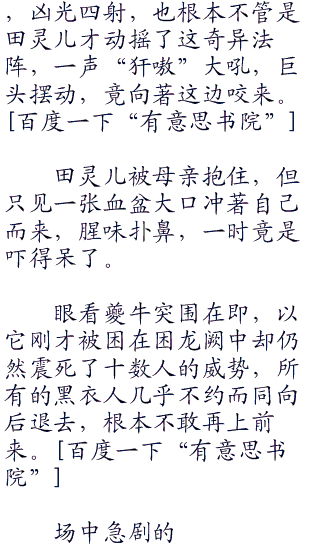 ，凶光四射，也根本不管是
田灵儿才动摇了这奇异法
阵，一声“犴嗷”大吼，巨
头摆动，竟向著这边咬来。
[百度一下“有意思书院”]
田灵儿被母亲抱住，但
只见一张血盆大口冲著自己
而来，腥味扑鼻，一时竟是
吓得呆了。
眼看夔牛突围在即，以
它刚才被困在困龙阙中却仍
然震死了十数人的威势，所
有的黑衣人几乎不约而同向
后退去，根本不敢再上前
来。[百度一下“有意思书
院”]
场中急剧的